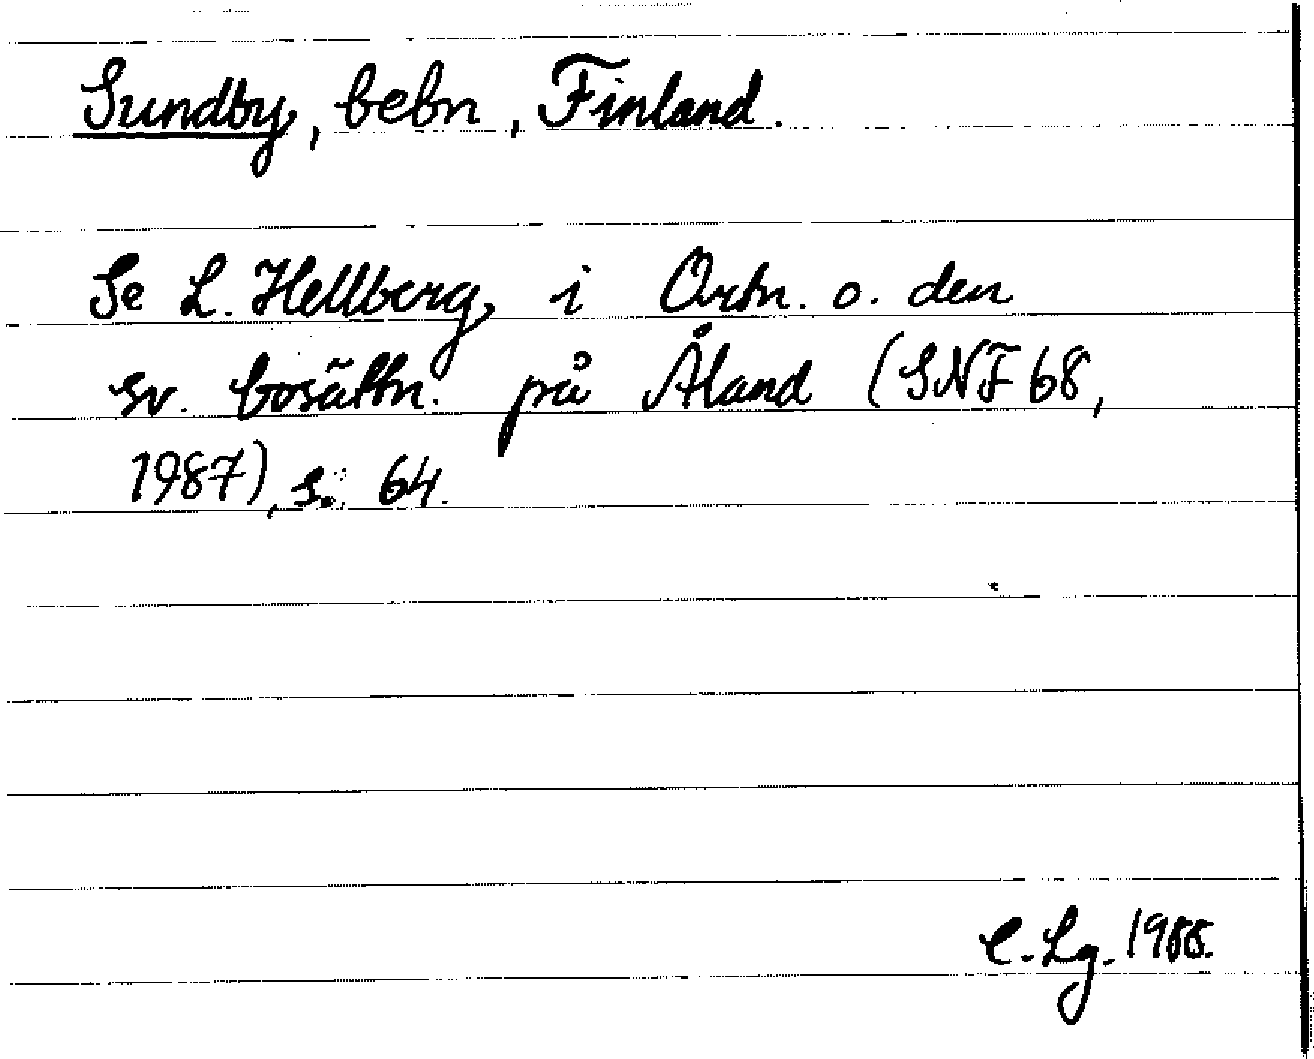 Sundby, bebn, Finland.
Se L. Hellberg, i Ortn. o. den
sv. bosättn. på Åland (SNF 68,
1987), s. 64.
C. Lg. 1988.